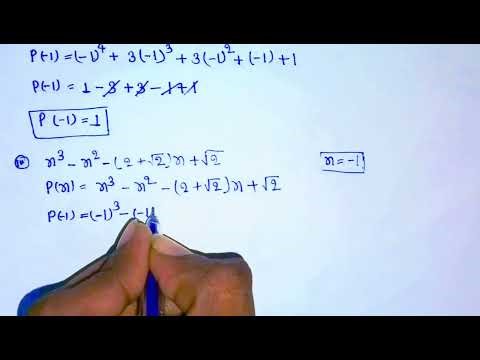 P(-1) = (-1)⁴ + 3(-1)³ + 3(-1)² + (-1) + 1
P(-1) = 1 - 3 + 3 - 1 + 1
P(-1) = 1
x³ - x² - (2 + √2)x + √2 x = -1
P(x) = x³ - x² - (2 + √2)x + √2
P(-1) = (-1)³ - (-1